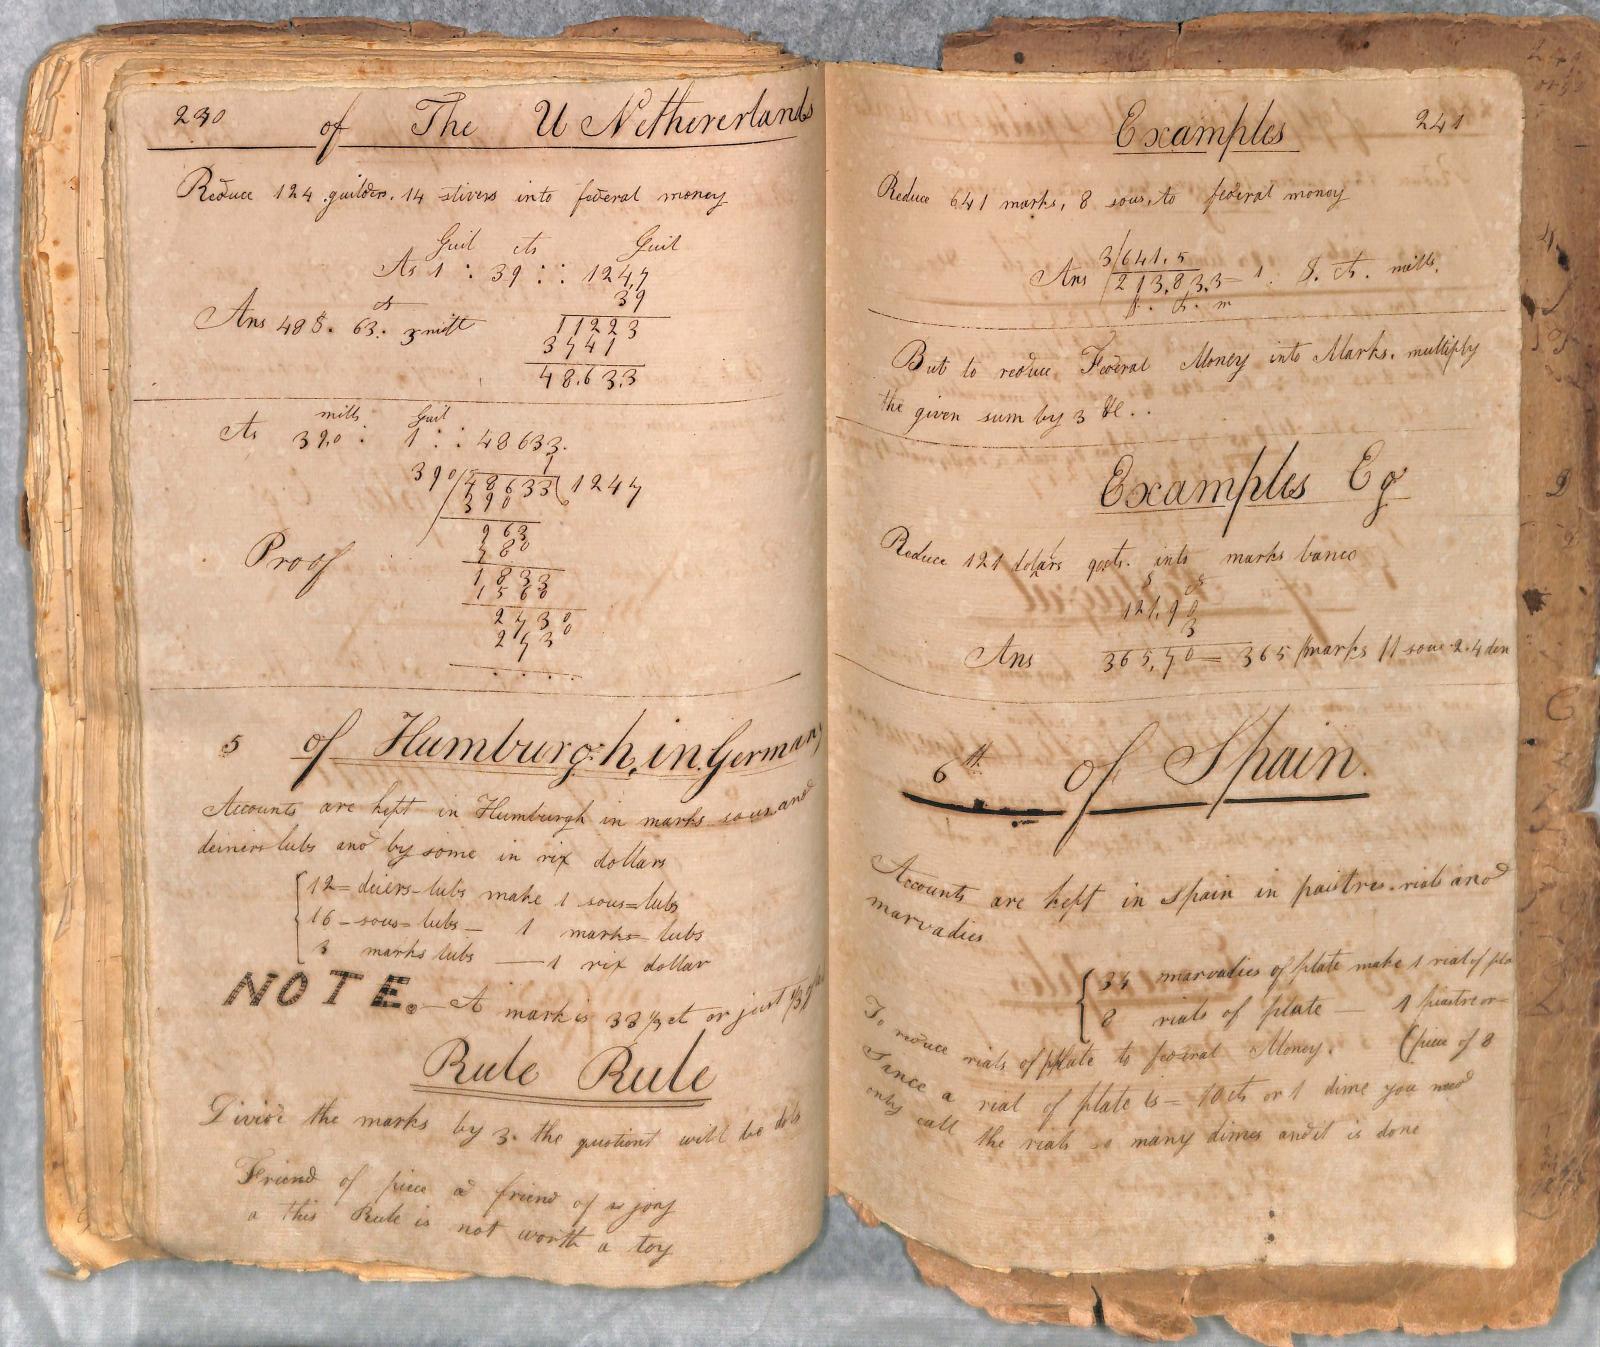 240
of The U Nethererlands
Reduce 124 guilders. 14 stivers into federal money
Guil cts Guil
As 1 : 39 : : 124,7
39
Ans 48 $. 63. 3 mill
cts
11223
3741
48,63,3
mills Guil
As 390 : 1 : : 48633.
1
390/48633(1247
390
963
780
Proof
1833
1560
2730
2730
. . . .
5 of Humburgh, in Germany
Accounts are kept in Humburgh in marks sous and
deiners lubs and by some in rix dollars
12= deiers-lubs make 1 sous=lubs
16 - sous= lubs - 1 marks= lubs
3 marks lubs — 1 rix dollar
NOTE. A mark is 33 1/3 ct or just
Rule Rule
Divide the marks by 3. the quotient will be dols
Friend of piece a friend of joy
a this Rule is not worth a toy
Examples 241
Reduce 641 marks, 8 sous, to federal money
3/641.5
Ans 213,83,3 = 1. $. ct. mills.
$. ct. m
But to reduce Federal Money into Marks. multiply
the given sum by 3 &c. .
Examples Eg
Reduce 121 dollars 90cts. into marks banco
121,90
3
Ans 365,70 = 365 marks 11 sous 2.4 den
6th of Spain.
Accounts are kept in Spain in paistres. rials and
marvadies
34 marvadies of plate make 1 rial of pla
8 rials of plate — 1 piastre or=
(piece of 8
To reduce rials of plate to federal Money.
Since a rial of plate is = 10 cts or 1 dime you need
only call the rials so many dimes and it is done